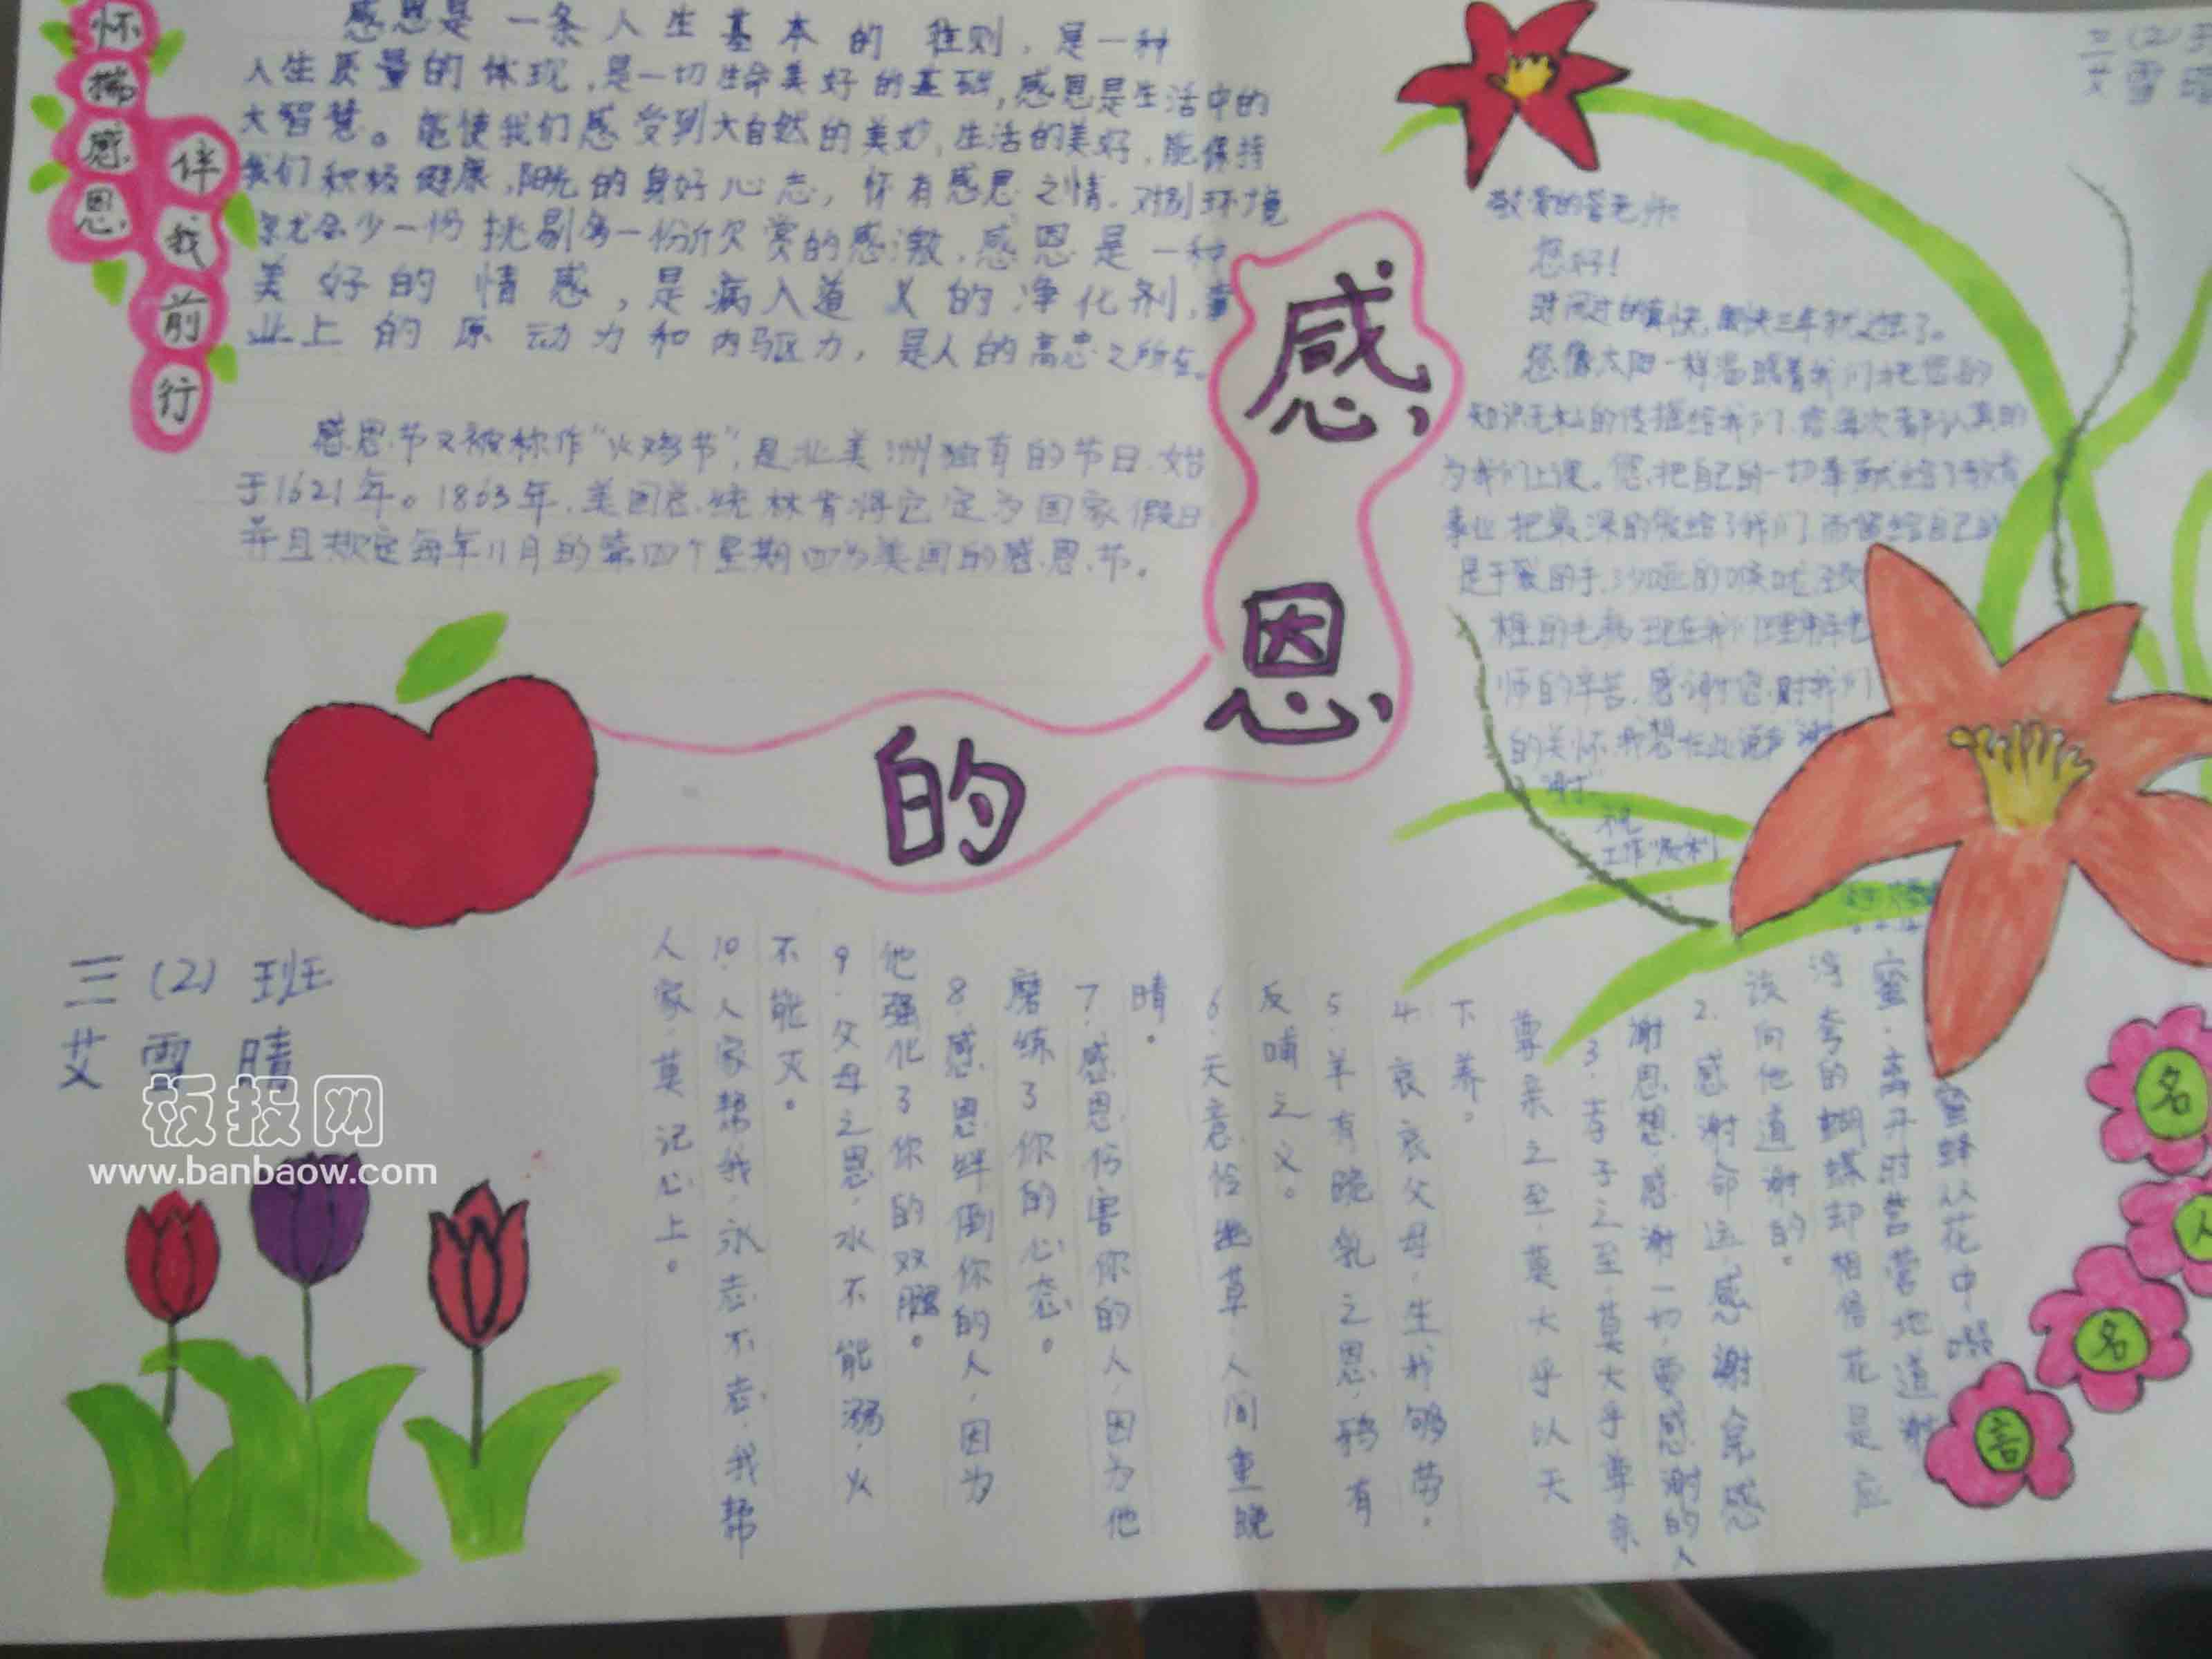 怀揣感恩
伴我前行
感恩是一条人生基本的准则，是一种
人生质量的体现，是一切生命美好的基础，感恩是生活中的
大智慧。能使我们感受到大自然的美妙，生活的美好，能保持
我们积极健康，阳光的身好心态，怀有感恩之情，对别环境
就会少一份挑剔多一份欣赏的感激，感恩是一种
美好的情感，是病入道义的净化剂，事
业上的原动力和内驱力，是人的高忠之所在。
感恩节又被称作“火鸡节”，是北美洲独有的节日，始
于1621年。1863年，美国总统林肯将它定为国家假日
并且规定每年11月的第四个星期四为美国的感恩节。
感恩
的
三(2)班
艾雪晴
三(2)班
艾雪晴
敬爱的管老师
您好！
时间过的真快，三年就过去了。
您像太阳一样温暖着我们把您的
知识无私的传播给我们，您每次都认真的
为我们上课。您把自己的一切奉献给了教育
事业，把最深的爱给了我们，而留给自己的
是干裂的手，沙哑的喉咙，
现在我们理解老
师的辛苦，感谢您对我们
的关怀，我想在此说声“谢
谢”
祝
工作顺利
名人名言
蜜蜂从花中
蜜，离开时营营地道谢
浮夸的蝴蝶却相信花是应
该向他道谢的。
2.感谢命运，感谢
谢思想，感谢一切要感谢的人
3.孝子之至，莫大乎尊亲
尊亲之至，莫大乎以天
下养。
4.哀哀父母，生我够劳。
5.羊有跪乳之恩，鸦有
反哺之义。
6.天意怜幽草，人间重晚
晴。
7.感恩伤害你的人，因为他
磨练了你的心态。
8.感恩绊倒你的人，因为
他强化了你的双腿。
9.父母之恩，水不能溺，火
不能灭。
10.人家帮我，永志不忘，我帮
人家，莫记心上。
板报网
www.banbaow.com